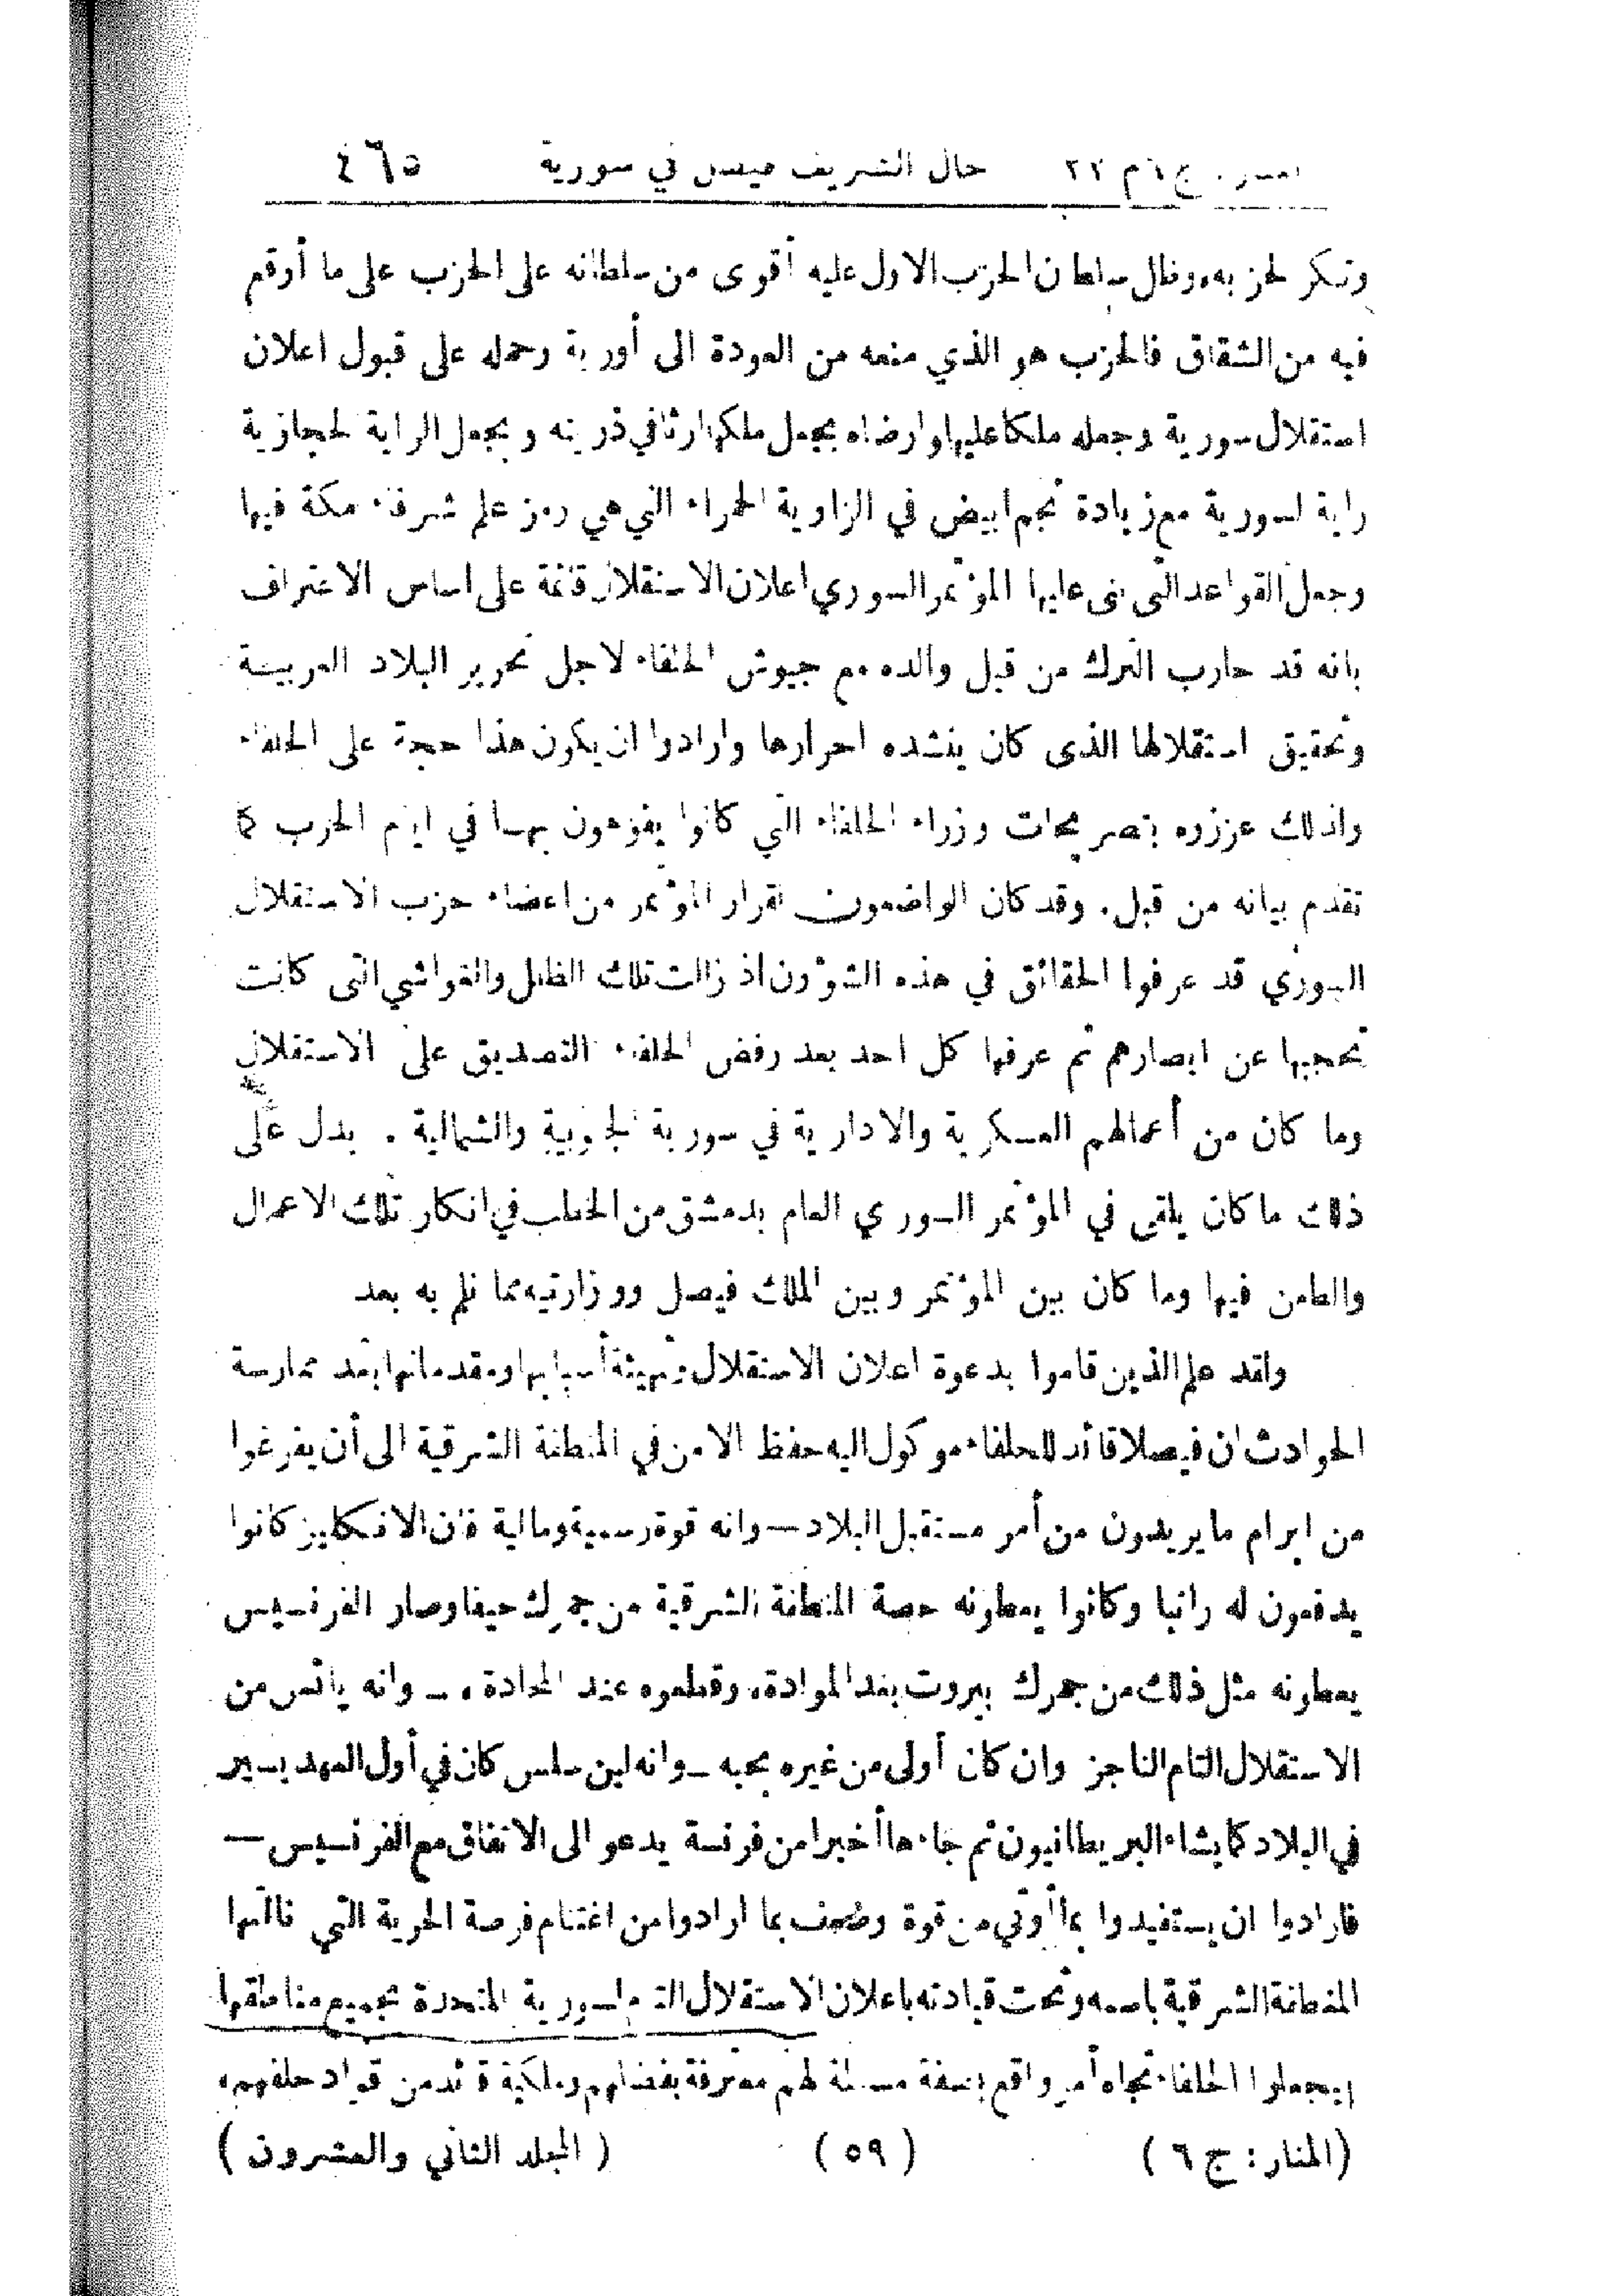 ج ٦ م ٢٢ حال الشريف فيصل في سورية ٤٦٥
وتنكر لحزبه، وظل سلطان الحزب الاول عليه أقوى من سلطانه على الحزب على ما أوقع
فيه من الشقاق فالحزب هو الذي منعه من العودة الى أوربة وحمله على قبول اعلان
استقلال سورية وجعله ملكا عليها وارضاه بجعل ملكها ارثا في ذريته وبجعل الراية الحجازية
راية لسورية مع زيادة نجم ابيض في الزاوية الحمراء التي هي رمز علم شرفاء مكة فيها
وجعل القواعد التي بنى عليها المؤتمر السوري اعلان الاستقلال قائمة على اساس الاعتراف
بانه قد حارب الترك من قبل والده مع جيوش الحلفاء لاجل تحرير البلاد العربيـة
وتحقيق استقلالها الذى كان ينشده احرارها وارادوا ان يكون هذا حجة على الحلفاء
ولذلك عززوه بتصريحات وزراء الحلفاء التي كانوا يفوهون بهـا في ايام الحرب كما
تقدم بيانه من قبل. وقد كان الواضعون لقرار المؤتمر من اعضاء حزب الاستقلال
السوري قد عرفوا الحقائق في هذه الشؤون اذ زالت تلك الظلل والغواشي التى كانت
تحجبها عن ابصارهم ثم عرفها كل احد بعد رفض الحلفاء التصديق على الاستقلال
وما كان من أعمالهم العسكرية والادارية في سورية الجنوبية والشمالية . يدل على
ذلك ما كان يلقى في المؤتمر السوري العام بدمشق من الخطب في انكار تلك الاعمال
والطعن فيها وما كان بين المؤتمر وبين الملك فيصل ووزارتيه مما نلم به بعد
ولقد علم الذين قاموا بدعوة اعلان الاستقلال وتهيئة أسبابها ومقدماتها بعد ممارسة
الحوادث ان فيصلا قائد للحلفاء موكول اليه حفظ الامن في المنطقة الشرقية الى أن يفرغوا
من ابرام ما يريدون من أمر مستقبل البلاد — وانه قوة رسمية ومالية فان الانكليز كانوا
يدفعون له راتبا وكانوا يعطونه حصة المنطقة الشرقية من جمرك حيفا وصار الفرنسيس
يعطونه مثل ذلك من جمرك بيروت بعد الموادة، وقطعوه عند المحادة ، ــ وانه يائس من
الاستقلال التام الناجز وان كان أولى من غيره بحبه ــ وانه لين سلس كان في أول العهد يسير
في البلاد كما يشاء البريطانيون ثم جاءها أخيرا من فرنسة يدعو الى الاتفاق مع الفرنسيس —
فارادوا ان يستفيدوا بما أوتي من قوة وضعف بما ارادوا من اغتنام فرصة الحرية التي نالتها
المنطقة الشرقية باسمه وتحت قيادته باعلان الاستقلال التام لسورية المتحدة بجميع مناطقها
ليجعلوا الحلفاء تجاه أمر واقع بصفة مسالمة لهم معترفة بفضلهم وملكية قائد من قواد حلفهم،
(المنار: ج ٦) (٥٩) (المجلد الثاني والعشرون)